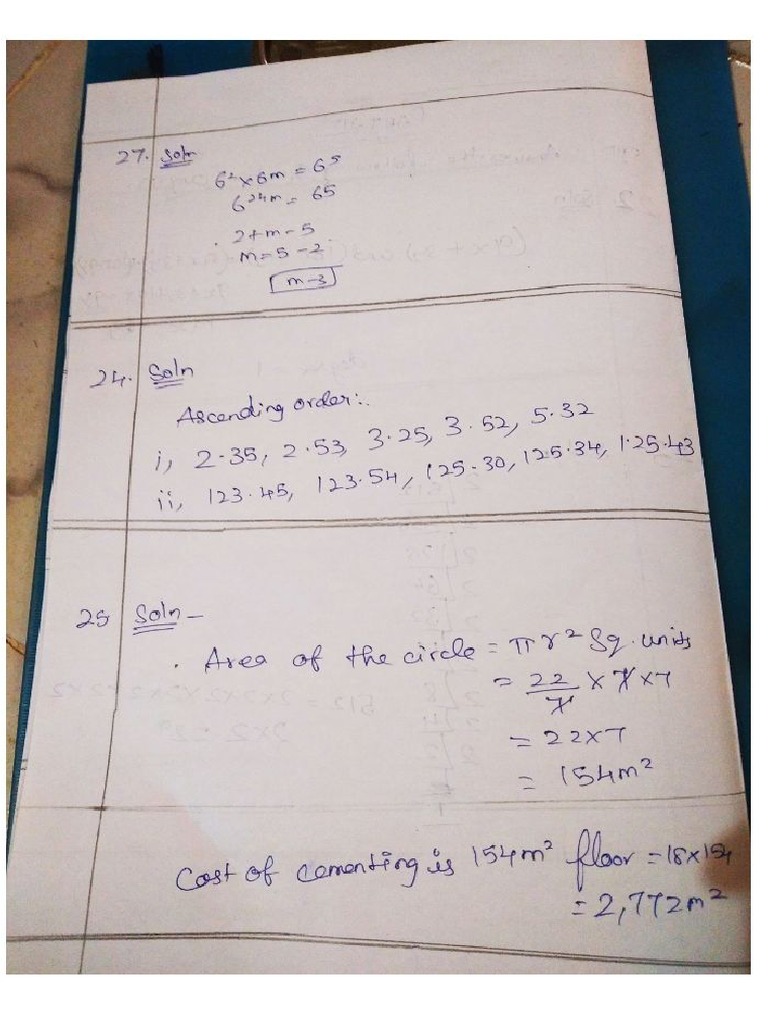 27. Soln
6² × 6m = 6⁵
6²⁺m = 65
2+m-5
m=5-2
m-3
24. Soln
Ascending order:.
i, 2.35, 2.53, 3.25, 3.52, 5.32
ii, 123.45, 123.54, 125.30, 125.34, 1.25.43
25 Soln -
. Area of the circle = πr² Sq. units
= 22/7 × 7 × 7
= 22×7
= 154m²
Cost of cementing is 154m² floor = 18×154
= 2,772m²